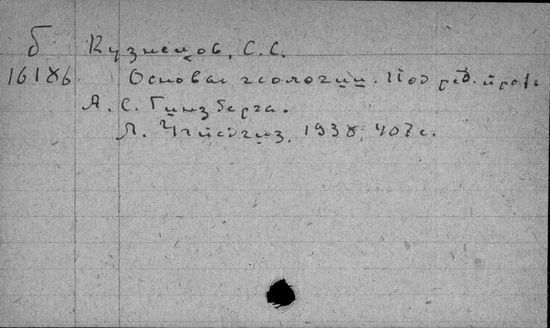 б Кузнецов, С.С.
16186 Основы геологии. Под ред. проф.
А. С. Гинзберга.
Л. Учпедгиз, 1938, 407 с.